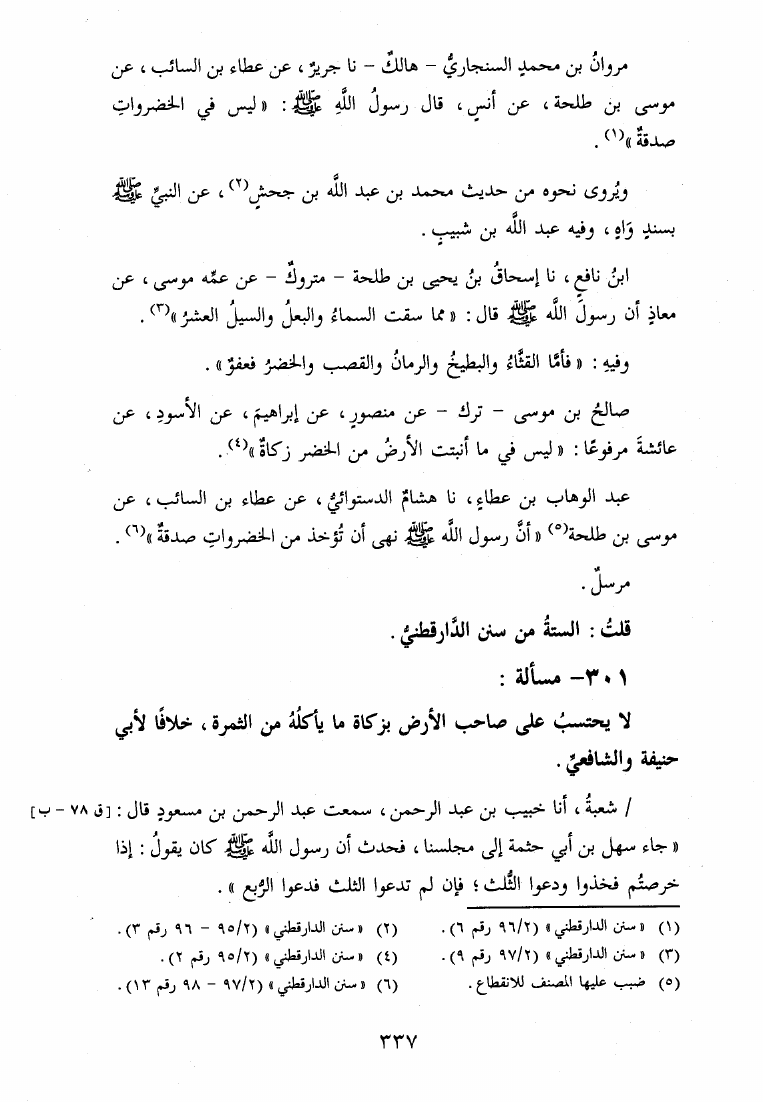 مروانُ بن محمدٍ السنجاريُّ – هالكٌ – نا جريرٌ، عن عطاء بن السائب، عن
موسى بن طلحة، عن أنسٍ، قال رسولُ اللَّهِ ﷺ: «ليس في الخضرواتِ
صدقةٌ»(١).
ويُروى نحوه من حديث محمد بن عبد اللَّه بن جحشٍ(٢)، عن النبيِّ ﷺ
بسندٍ وَاهٍ، وفيه عبد اللَّه بن شبيبٍ.
ابنُ نافعٍ، نا إسحاقُ بنُ يحيى بن طلحة – متروكٌ – عن عمِّه موسى، عن
معاذٍ أن رسولَ اللَّه ﷺ قال: «مما سقت السماءُ والبعلُ والسيلُ العشرُ»(٣).
وفيهِ: «فأمَّا القثَّاءُ والبطيخُ والرمانُ والقصب والخضرُ فعفوٌ».
صالحُ بن موسى – ترك – عن منصورٍ، عن إبراهيمَ، عن الأسودِ، عن
عائشةَ مرفوعًا: «ليس في ما أنبتت الأرضُ من الخضر زكاةٌ»(٤).
عبد الوهاب بن عطاءٍ، نا هشامٌ الدستوائيُّ، عن عطاء بن السائب، عن
موسى بن طلحة(٥) «أنَّ رسول اللَّه ﷺ نهى أن تُؤخذ من الخضرواتِ صدقةٌ»(٦).
مرسلٌ.
قلتُ: الستةُ من سنن الدَّارقطنيُّ.
٣٠١– مسألة:
لا يحتسبُ على صاحب الأرض بزكاة ما يأكلُهُ من الثمرة، خلافًا لأبي
حنيفة والشافعيِّ.
/ شعبةُ، أنا خبيب بن عبد الرحمن، سمعت عبد الرحمن بن مسعودٍ قال: [ق ٧٨ – ب]
«جاء سهل بن أبي حثمة إلى مجلسنا، فحدث أن رسول اللَّه ﷺ كان يقولُ: إذا
خرصتُم فخذوا ودعوا الثُّلث؛ فإن لم تدعوا الثلث فدعوا الرُّبع».
(١) «سنن الدارقطني» (٩٦/٢ رقم ٦). (٢) «سنن الدارقطني» (٩٥/٢ – ٩٦ رقم ٣).
(٣) «سنن الدارقطني» (٩٧/٢ رقم ٩). (٤) «سنن الدارقطني» (٩٥/٢ رقم ٢).
(٥) ضبب عليها المصنف للانقطاع. (٦) «سنن الدارقطني» (٩٧/٢ – ٩٨ رقم ١٣).
٣٣٧